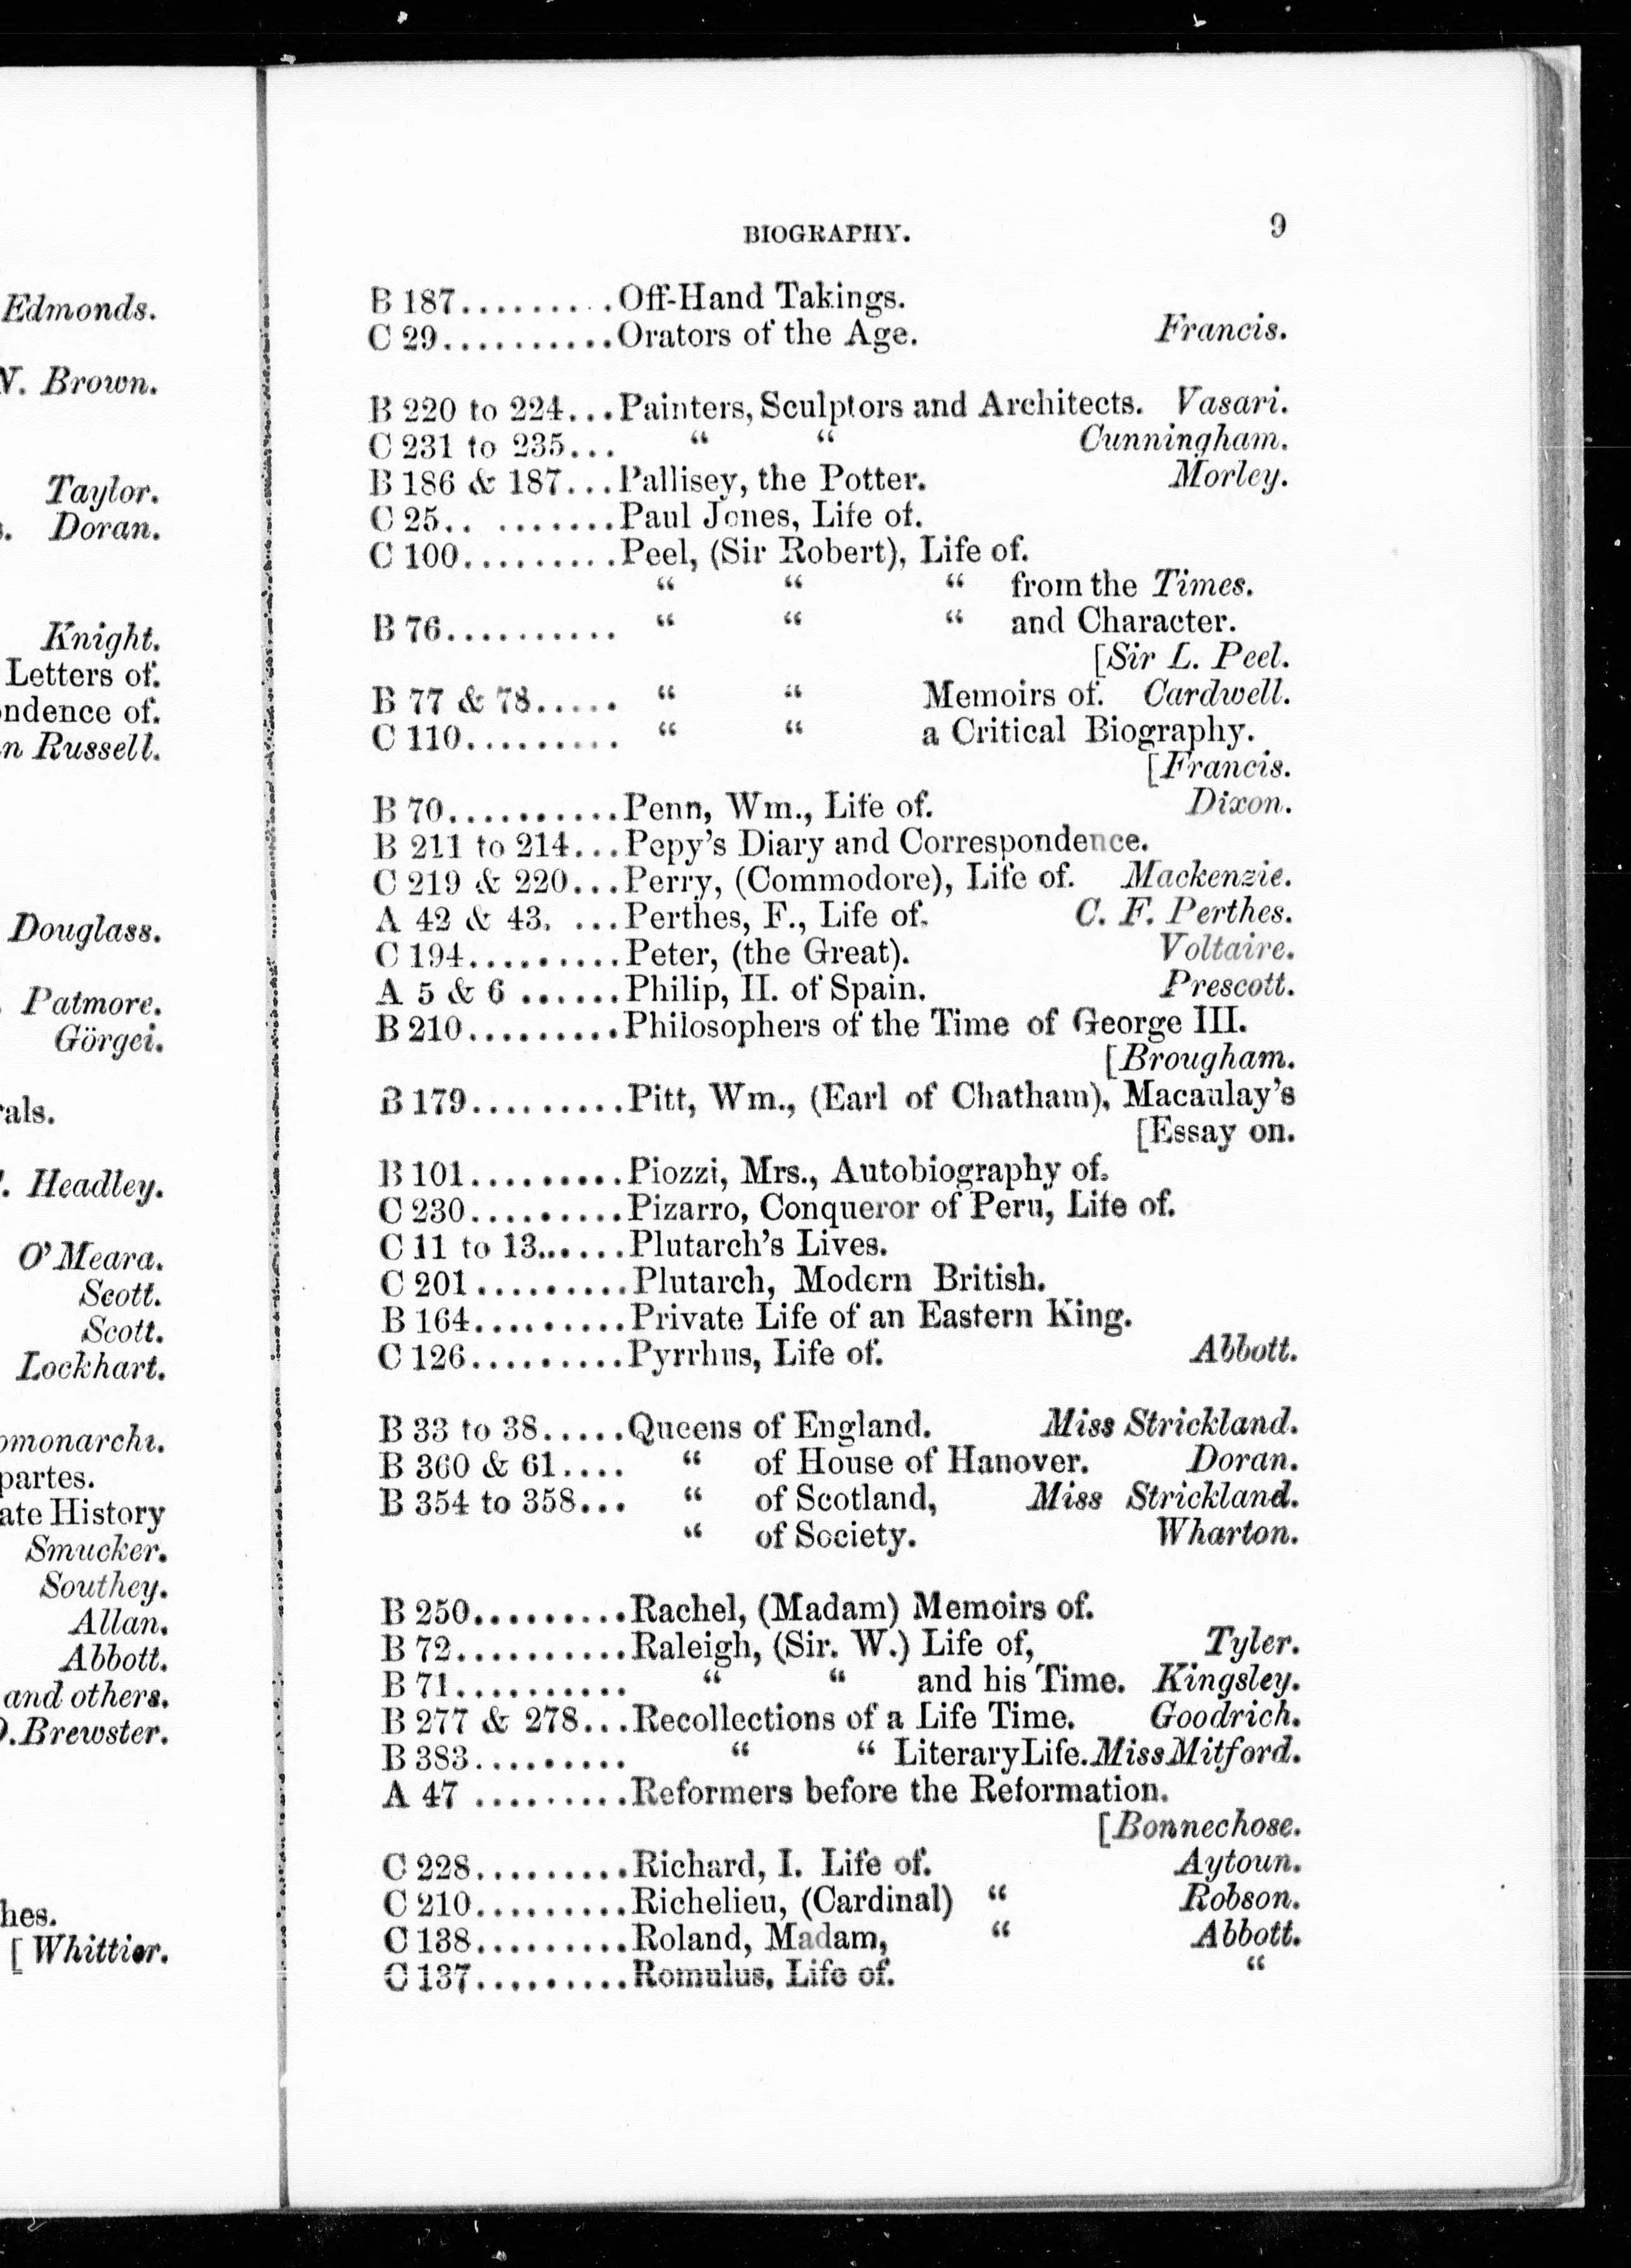 Edmonds.
N. Brown.
Taylor.
s. Doran.
Knight.
Letters of.
ndence of.
n Russell.
Douglass.
Patmore.
Görgei.
rals.
Headley.
O'Meara.
Scott.
Scott.
Lockhart.
omonarchi.
partes.
ate History
Smucker.
Southey.
Allan.
Abbott.
and others.
D. Brewster.
hes.
[Whittier.
BIOGRAPHY. 9
B 187..........Off-Hand Takings.
C 29..........Orators of the Age. Francis.
B 220 to 224...Painters, Sculptors and Architects. Vasari.
C 231 to 235... “ “ Cunningham.
B 186 & 187...Pallisey, the Potter. Morley.
C 25.. .......Paul Jones, Life of.
C 100.........Peel, (Sir Robert), Life of.
“ “ “ from the Times.
B 76.......... “ “ “ and Character.
[Sir L. Peel.
B 77 & 78..... “ “ Memoirs of. Cardwell.
C 110......... “ “ a Critical Biography.
[Francis.
B 70..........Penn, Wm., Life of. Dixon.
B 211 to 214...Pepy's Diary and Correspondence.
C 219 & 220...Perry, (Commodore), Life of. Mackenzie.
A 42 & 43. ...Perthes, F., Life of. C. F. Perthes.
C 194.........Peter, (the Great). Voltaire.
A 5 & 6 ......Philip, II. of Spain. Prescott.
B 210.........Philosophers of the Time of George III.
[Brougham.
B 179.........Pitt, Wm., (Earl of Chatham), Macaulay's
[Essay on.
B 101..........Piozzi, Mrs., Autobiography of.
C 230.........Pizarro, Conqueror of Peru, Life of.
C 11 to 13......Plutarch's Lives.
C 201.........Plutarch, Modern British.
B 164.........Private Life of an Eastern King.
C 126.........Pyrrhus, Life of. Abbott.
B 33 to 38.....Queens of England. Miss Strickland.
B 360 & 61.... “ of House of Hanover. Doran.
B 354 to 358... “ of Scotland, Miss Strickland.
“ of Society. Wharton.
B 250.........Rachel, (Madam) Memoirs of.
B 72..........Raleigh, (Sir. W.) Life of, Tyler.
B 71.......... “ “ and his Time. Kingsley.
B 277 & 278...Recollections of a Life Time. Goodrich.
B 383......... “ “ Literary Life. Miss Mitford.
A 47 .........Reformers before the Reformation.
[Bonnechose.
C 228.........Richard, I. Life of. Aytoun.
C 210.........Richelieu, (Cardinal) “ Robson.
C 138.........Roland, Madam, “ Abbott.
C 137.........Romulus, Life of. “